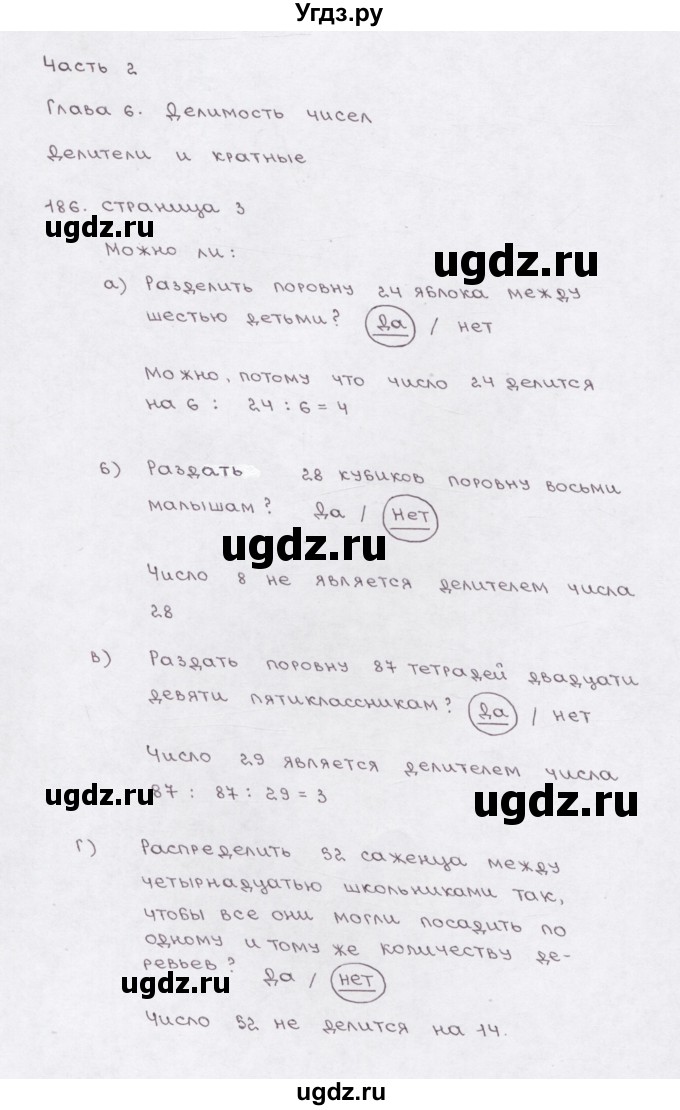 Угдз.ру
Часть 2
Глава 6. Делимость чисел
Делители и кратные
186. страница 3
ugdz.ru
Можно ли:
ugdz.ru
а) Разделить поровну 24 яблока между
шестью детьми? да / нет
Можно, потому что число 24 делится
на 6 : 24 : 6 = 4
б) Раздать 28 кубиков поровну восьми
малышам? Да / нет
ugdz.ru
Число 8 не является делителем числа
28
в) Раздать поровну 87 тетрадей двадцати
девяти пятиклассникам? да / нет
Число 29 является делителем числа
87 : 87 : 29 = 3
ugdz.ru
ugdz.ru
г) Распределить 52 саженца между
четырнадцатью школьниками так,
чтобы все они могли посадить по
одному и тому же количеству де-
ревьев? Да / нет
ugdz.ru
Число 52 не делится на 14.
ugdz.ru